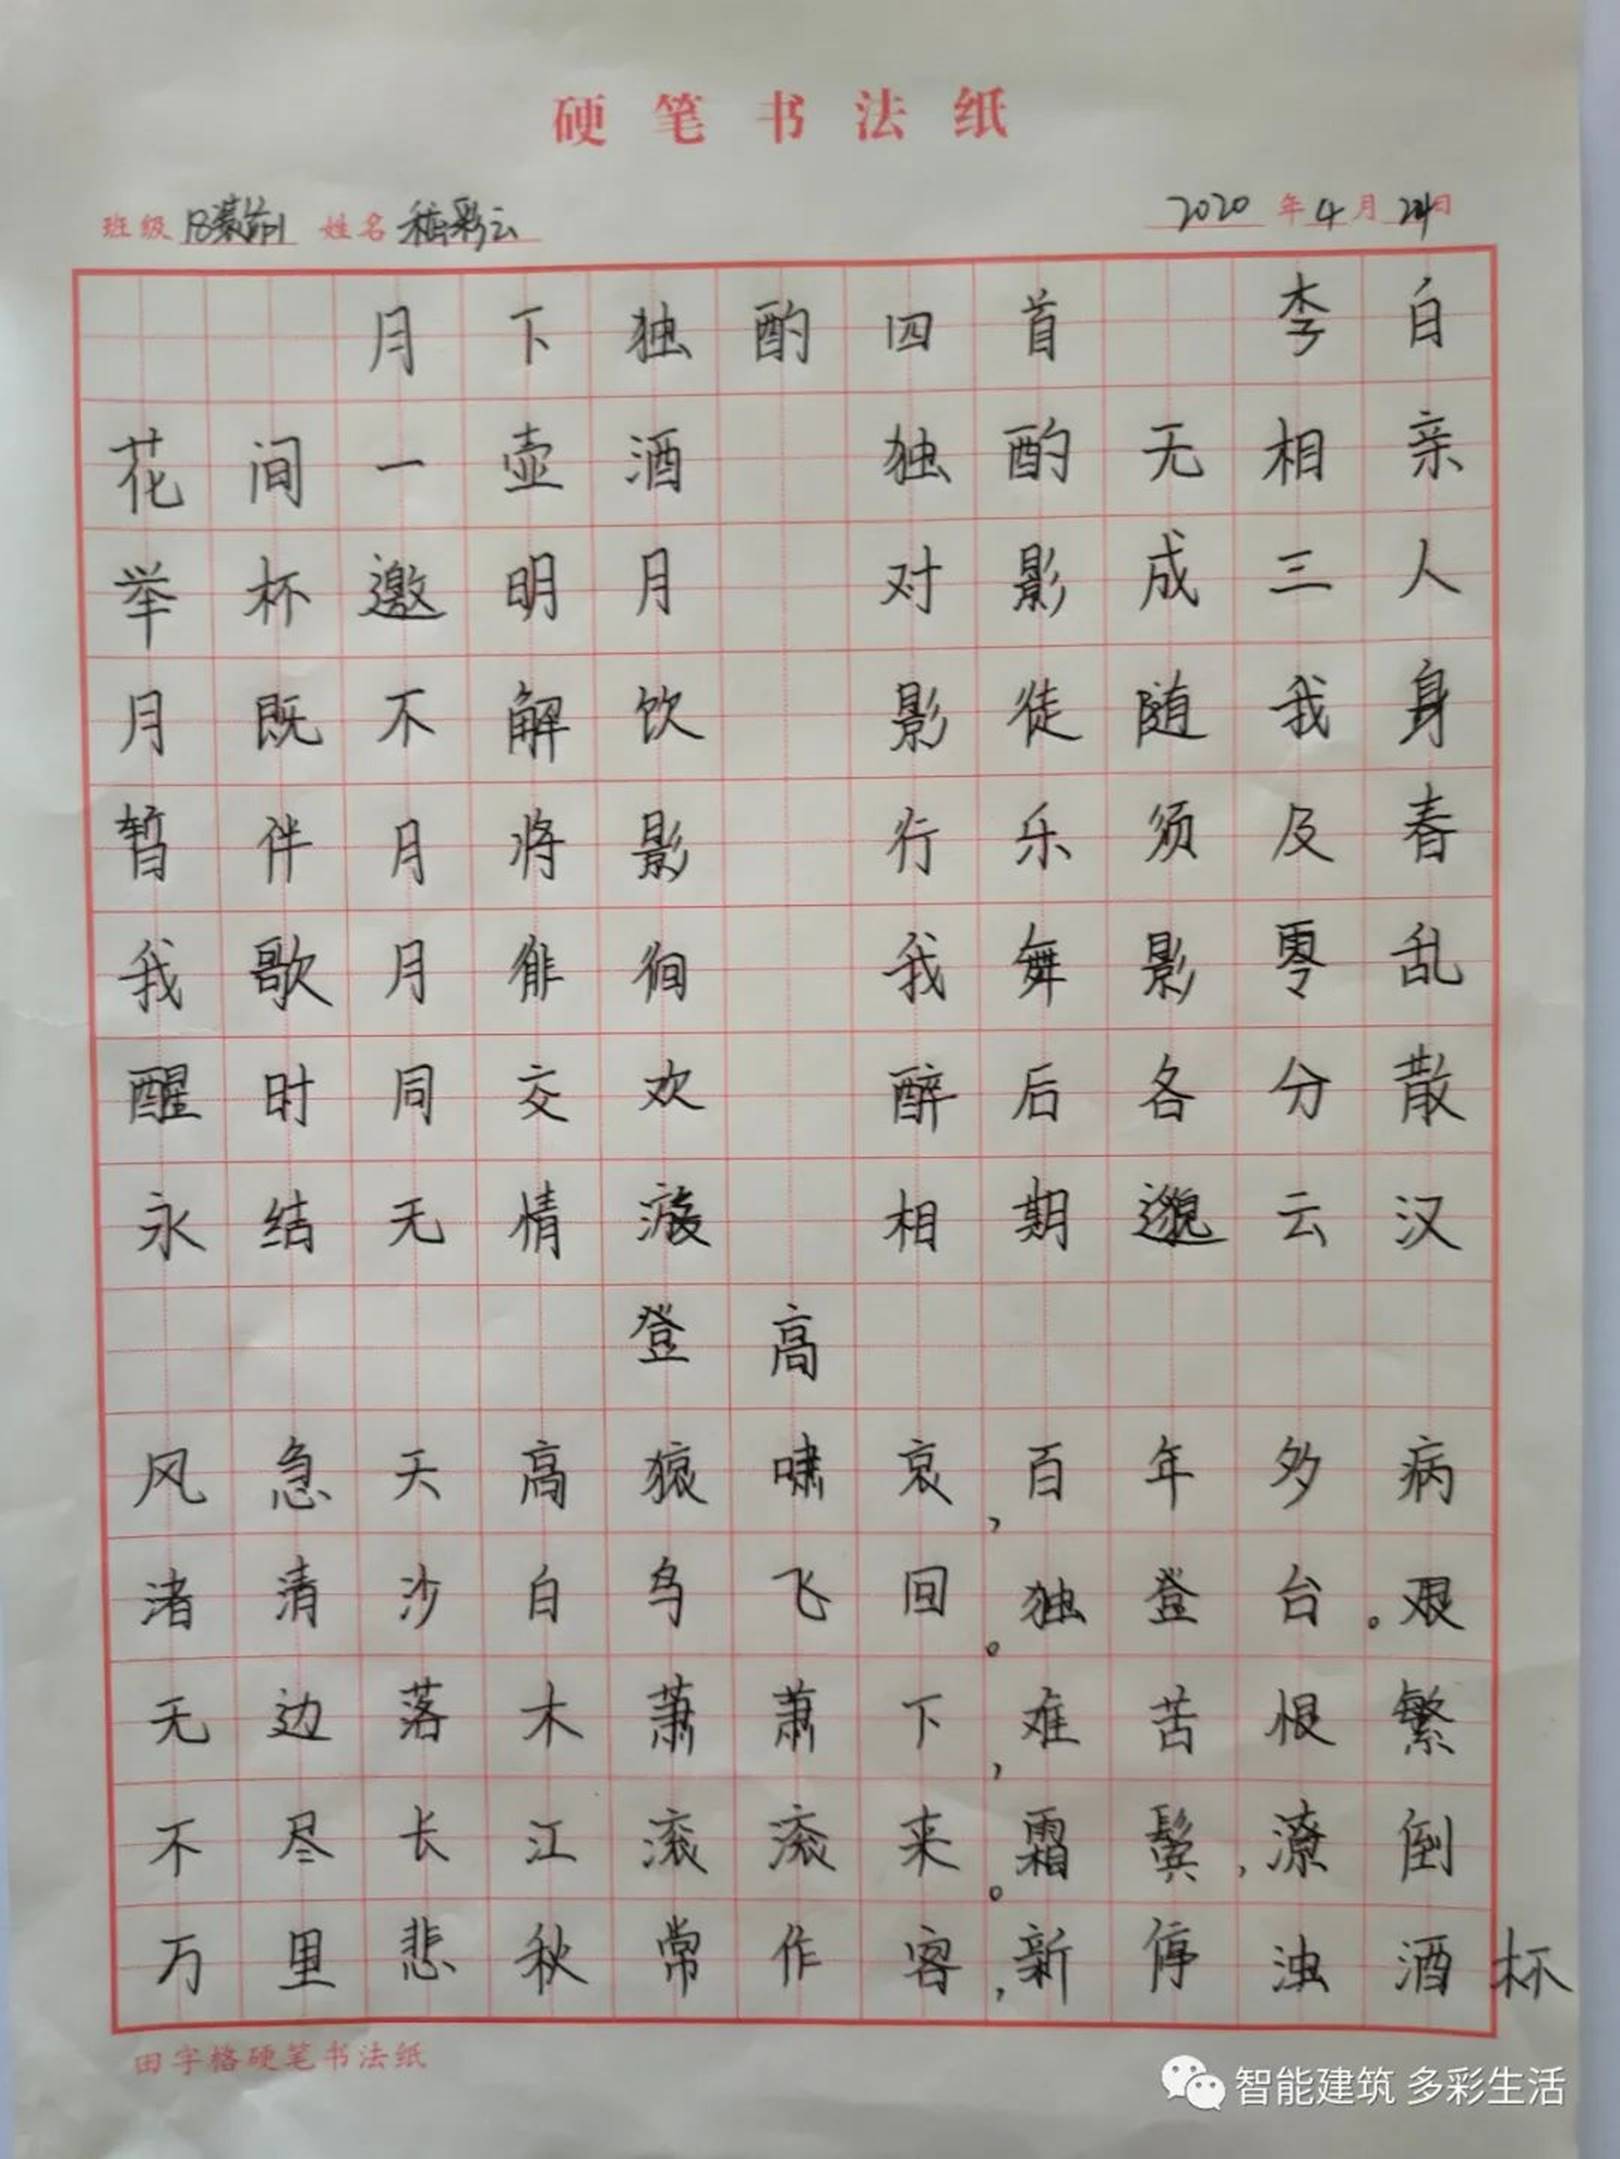 硬笔书法纸
班级 姓名 彩云 2020年4月24日
月下独酌四首 李白
花间一壶酒 独酌无相亲
举杯邀明月 对影成三人
月既不解饮 影徒随我身
暂伴月将影 行乐须及春
我歌月徘徊 我舞影零乱
醒时同交欢 醉后各分散
永结无情游 相期邈云汉
登高
风急天高猿啸哀,百年多病
渚清沙白鸟飞回。独登台。艰
无边落木萧萧下,难苦恨繁
不尽长江滚滚来。霜鬓,潦倒
万里悲秋常作客,新停浊酒杯
田字格硬笔书法纸
智能建筑 多彩生活